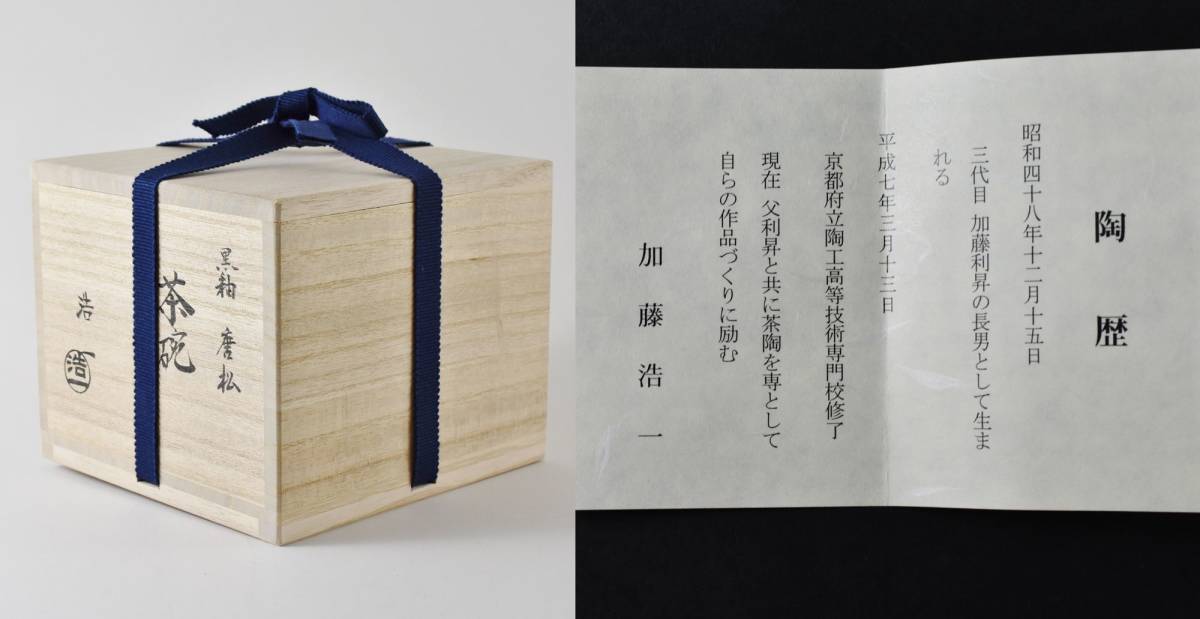 黒釉 唐松
茶碗
浩
浩一
陶歴
昭和四十八年十二月十五日
三代目 加藤利昇の長男として生ま
れる
平成七年三月十三日
京都府立陶工高等技術専門校修了
現在 父利昇と共に茶陶を専として
自らの作品づくりに励む
加藤浩一